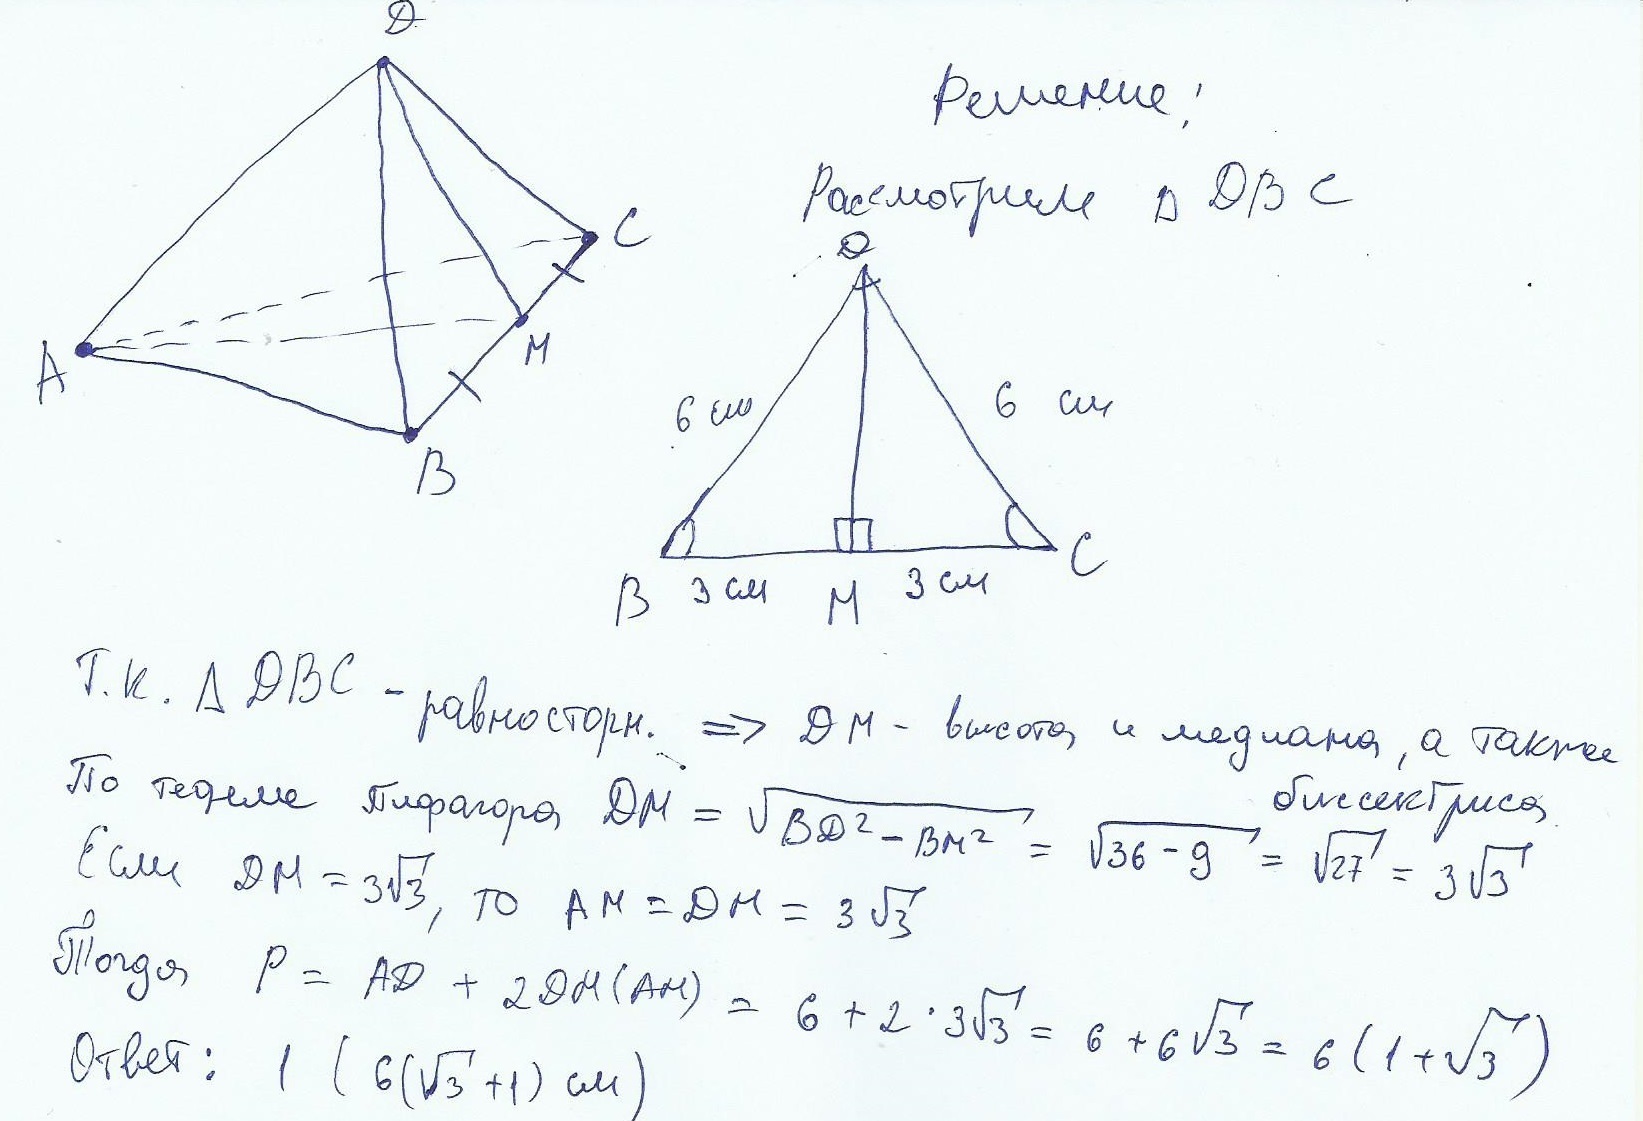 D
C
A
M
B
Решение:
Рассмотрим Δ DBC
D
6 см
6 см
B 3 см M 3 см C
Т.к. Δ DBC - равносторн. => DM - высота и медиана, а также биссектриса
По теореме Пифагора DM = √(BD² - BM²) = √(36 - 9) = √27 = 3√3
Если DM = 3√3, то AM = DM = 3√3
Тогда P = AD + 2DM(AM) = 6 + 2 · 3√3 = 6 + 6√3 = 6(1 + √3)
Ответ: 1 (6(√3 + 1) см)